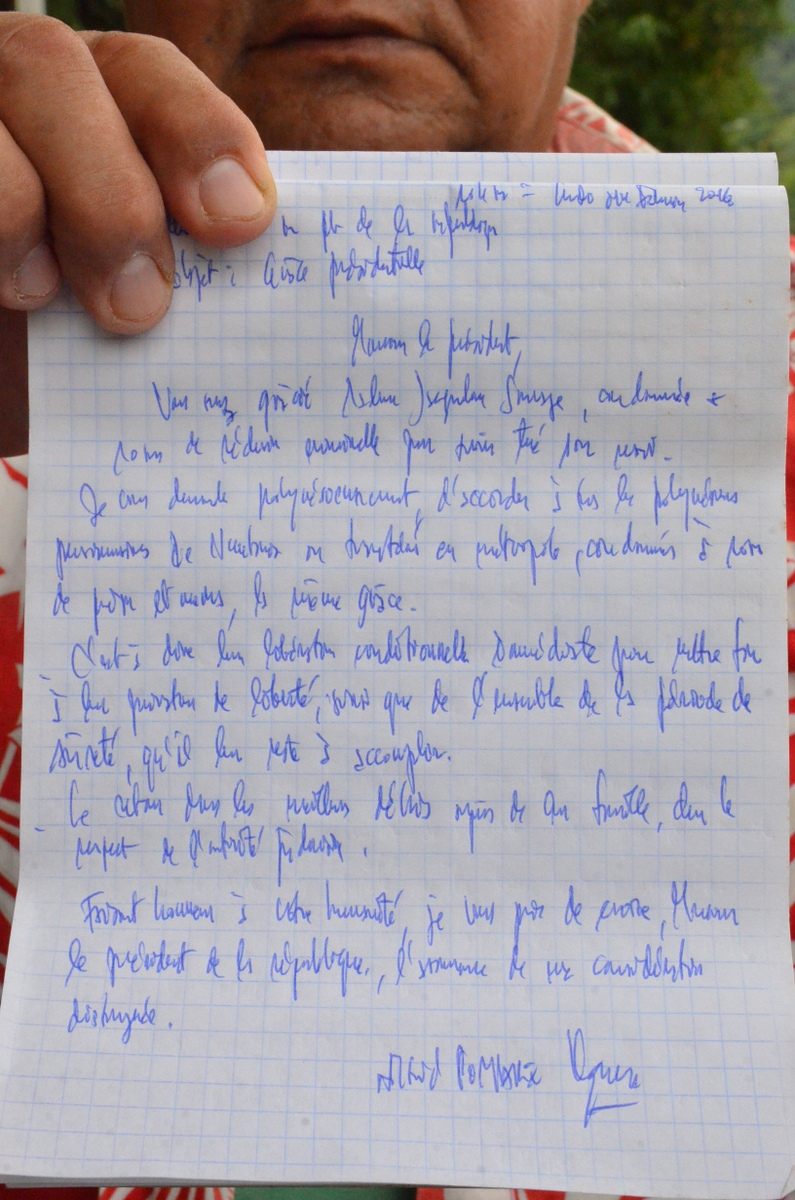 2016
de la république
objet : Grâce présidentielle
Monsieur le président,
Vous avez gracié Jacqueline Sauvage, condamnée à
10 ans de réclusion criminelle pour avoir tué son mari.
Je vous demande respectueusement, d'accorder à tous les polynésiens
prisonniers de Nuutania ou transférés en métropole, condamnés à 10 ans
de prison et moins, la même grâce.
C'est à dire leur libération conditionnelle immédiate pour mettre fin
à leur privation de liberté, ainsi que de l'ensemble de la période de
sûreté, qu'il leur reste à accomplir.
Ce retour dans les meilleurs délais auprès de leur famille, dans le
respect de l'autorité judiciaire.
Faisant honneur à votre humanité, je vous prie de croire, Monsieur
le président de la république, l'assurance de ma considération
distinguée.